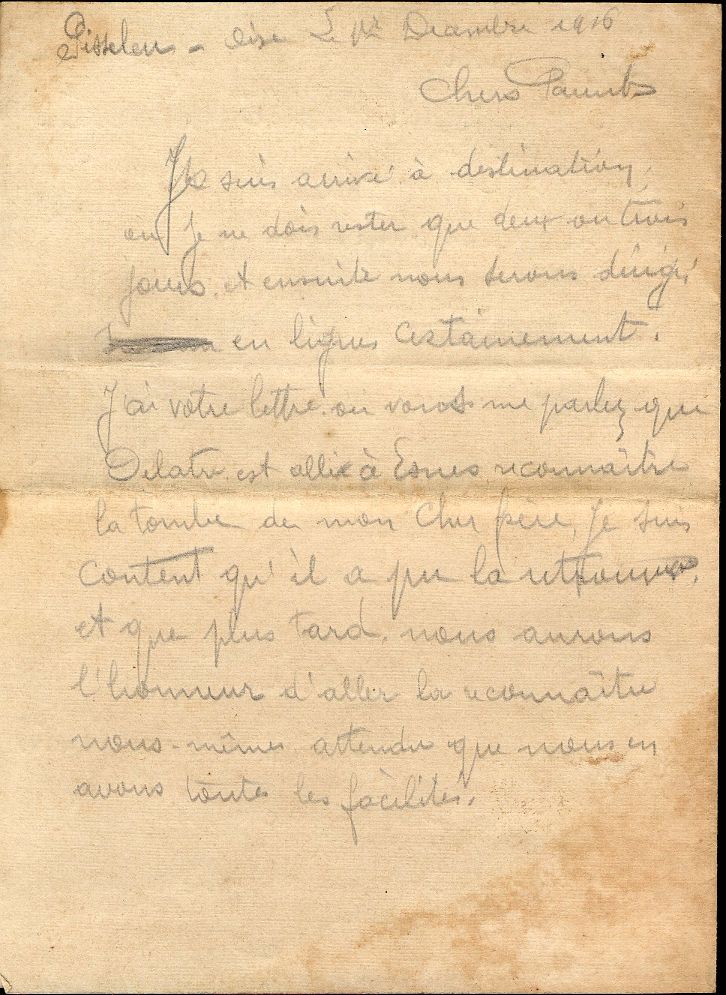 Pisseleu - Oise Le 1er Décembre 1916
Chers Parents
Je suis arrivé à destination,
ou je ne dois rester que deux ou trois
jours. et ensuite nous serons dirigé
en lignes certainement.
J'ai votre lettre. ou vous me parlez que
Delatre est allé à Esnes reconnaître
la tombe de mon cher frère, Je suis
content qu'il a pu la retrouver,
et que plus tard. nous aurons
l'honneur d'aller la reconnaître
nous-mêmes attendu que nous en
avons toutes les facilités.